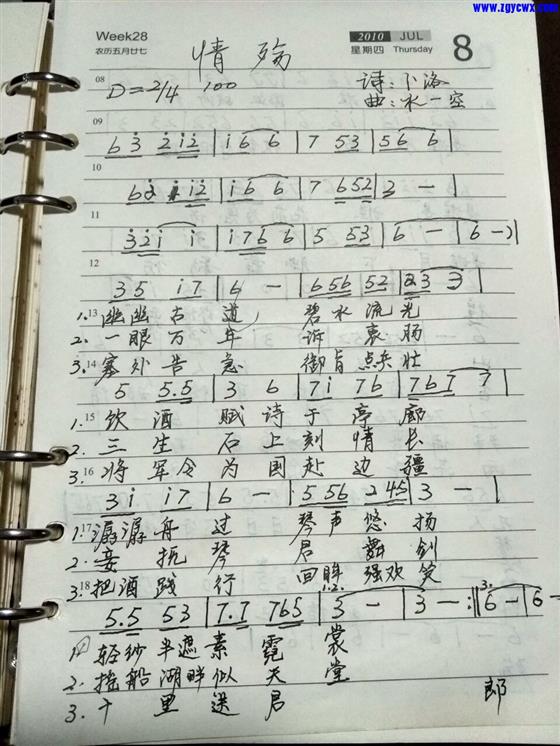 www.zgycwx.com
Week28
农历五月廿七
2010 JUL
星期四 Thursday
8
情殇
08
D=2/4 100
诗:卜洛
曲:水一空
09
6 3 2 1 2 | i 6 6 | 7 5 3 | 5 6 6 |
10
6 3 i 2 | i 6 6 | 7 6 5 2 | 2 — |
11
3 2 i i | i 7 6 6 | 5 5 3 | 6 — | 6 —)
12
3 5 i 7 | 6 — | 6 5 6 5 2 | 2 3 3 |
1.13 幽幽古道 碧水流光
2. 一眼万年 诉衷肠
3.14 塞外告急 御旨点兵壮
5 5.5 | 3 6 | 7 i 7 6 | 7 6 7 7 |
1.15 饮酒赋诗于亭廊
2. 三生石上刻情长
3.16 将军令为国赴边疆
3 i i 7 | 6 — | 5 5 6 2 4 5 | 3 — |
1.17 潺潺舟过 琴声悠扬
2. 妾抚琴 君舞剑
3.18 把酒践行 回眸强欢笑
5.5 5 3 | 7.7 7 6 5 | 1.2. 3 — | 3 — :‖ 3. 6 — | 6 —
1. 轻纱半遮素霓裳
2. 摇船湖畔似天堂
3. 十里送君 郎